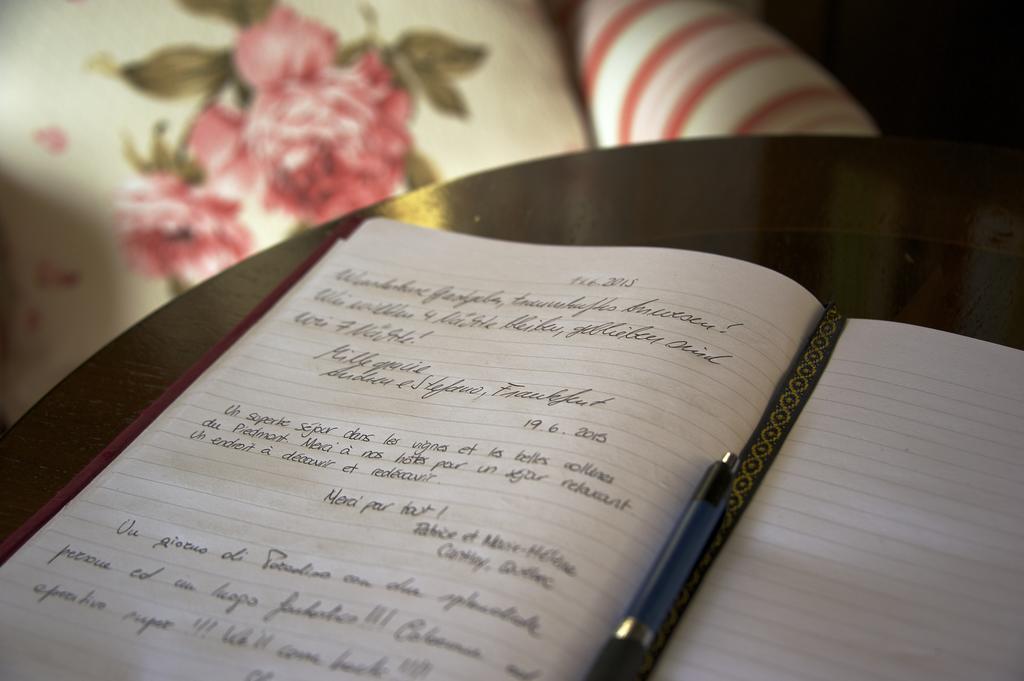 11.6.2015
Wunderbare Gastgeber, traumhaftes Anwesen!
Wir wollten 4 Nächte bleiben, geblieben sind
wir 7 Nächte!
Mille grazie
e Stefano, Frankfurt
19.6.2015
Un superbe séjour dans les vignes et les belles collines
du Piedmont. Merci à nos hôtes pour un séjour relaxant.
Un endroit à découvrir et redécouvrir.
Merci pour tout!
Patrice et Marie-Hélène
Québec
Un giorno di Paradiso con due splendide
persone ed un luogo fantastico!!!!
aperitivo super!!! We'll come back!!!!!